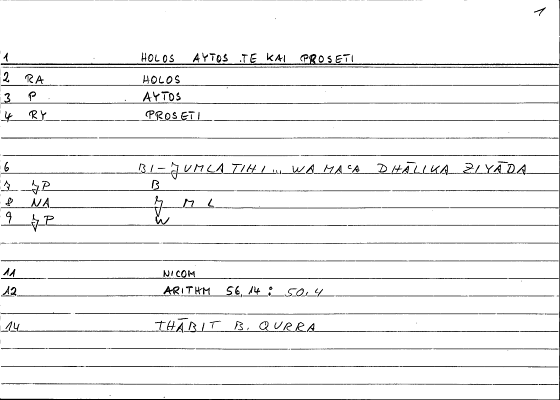 1
1 HOLOS AYTOS .TE KAI PROSETI
2 RA HOLOS
3 P AYTOS
4 RY PROSETI
6 BI-JUMLATIHI... WA MAᶜA DHĀLIKA ZIYĀDA
7 JP B
8 NA J M L
9 JP W
11 NICOM
12 ARITHM 56,14 : 50,4
14 THĀBIT B. QURRA